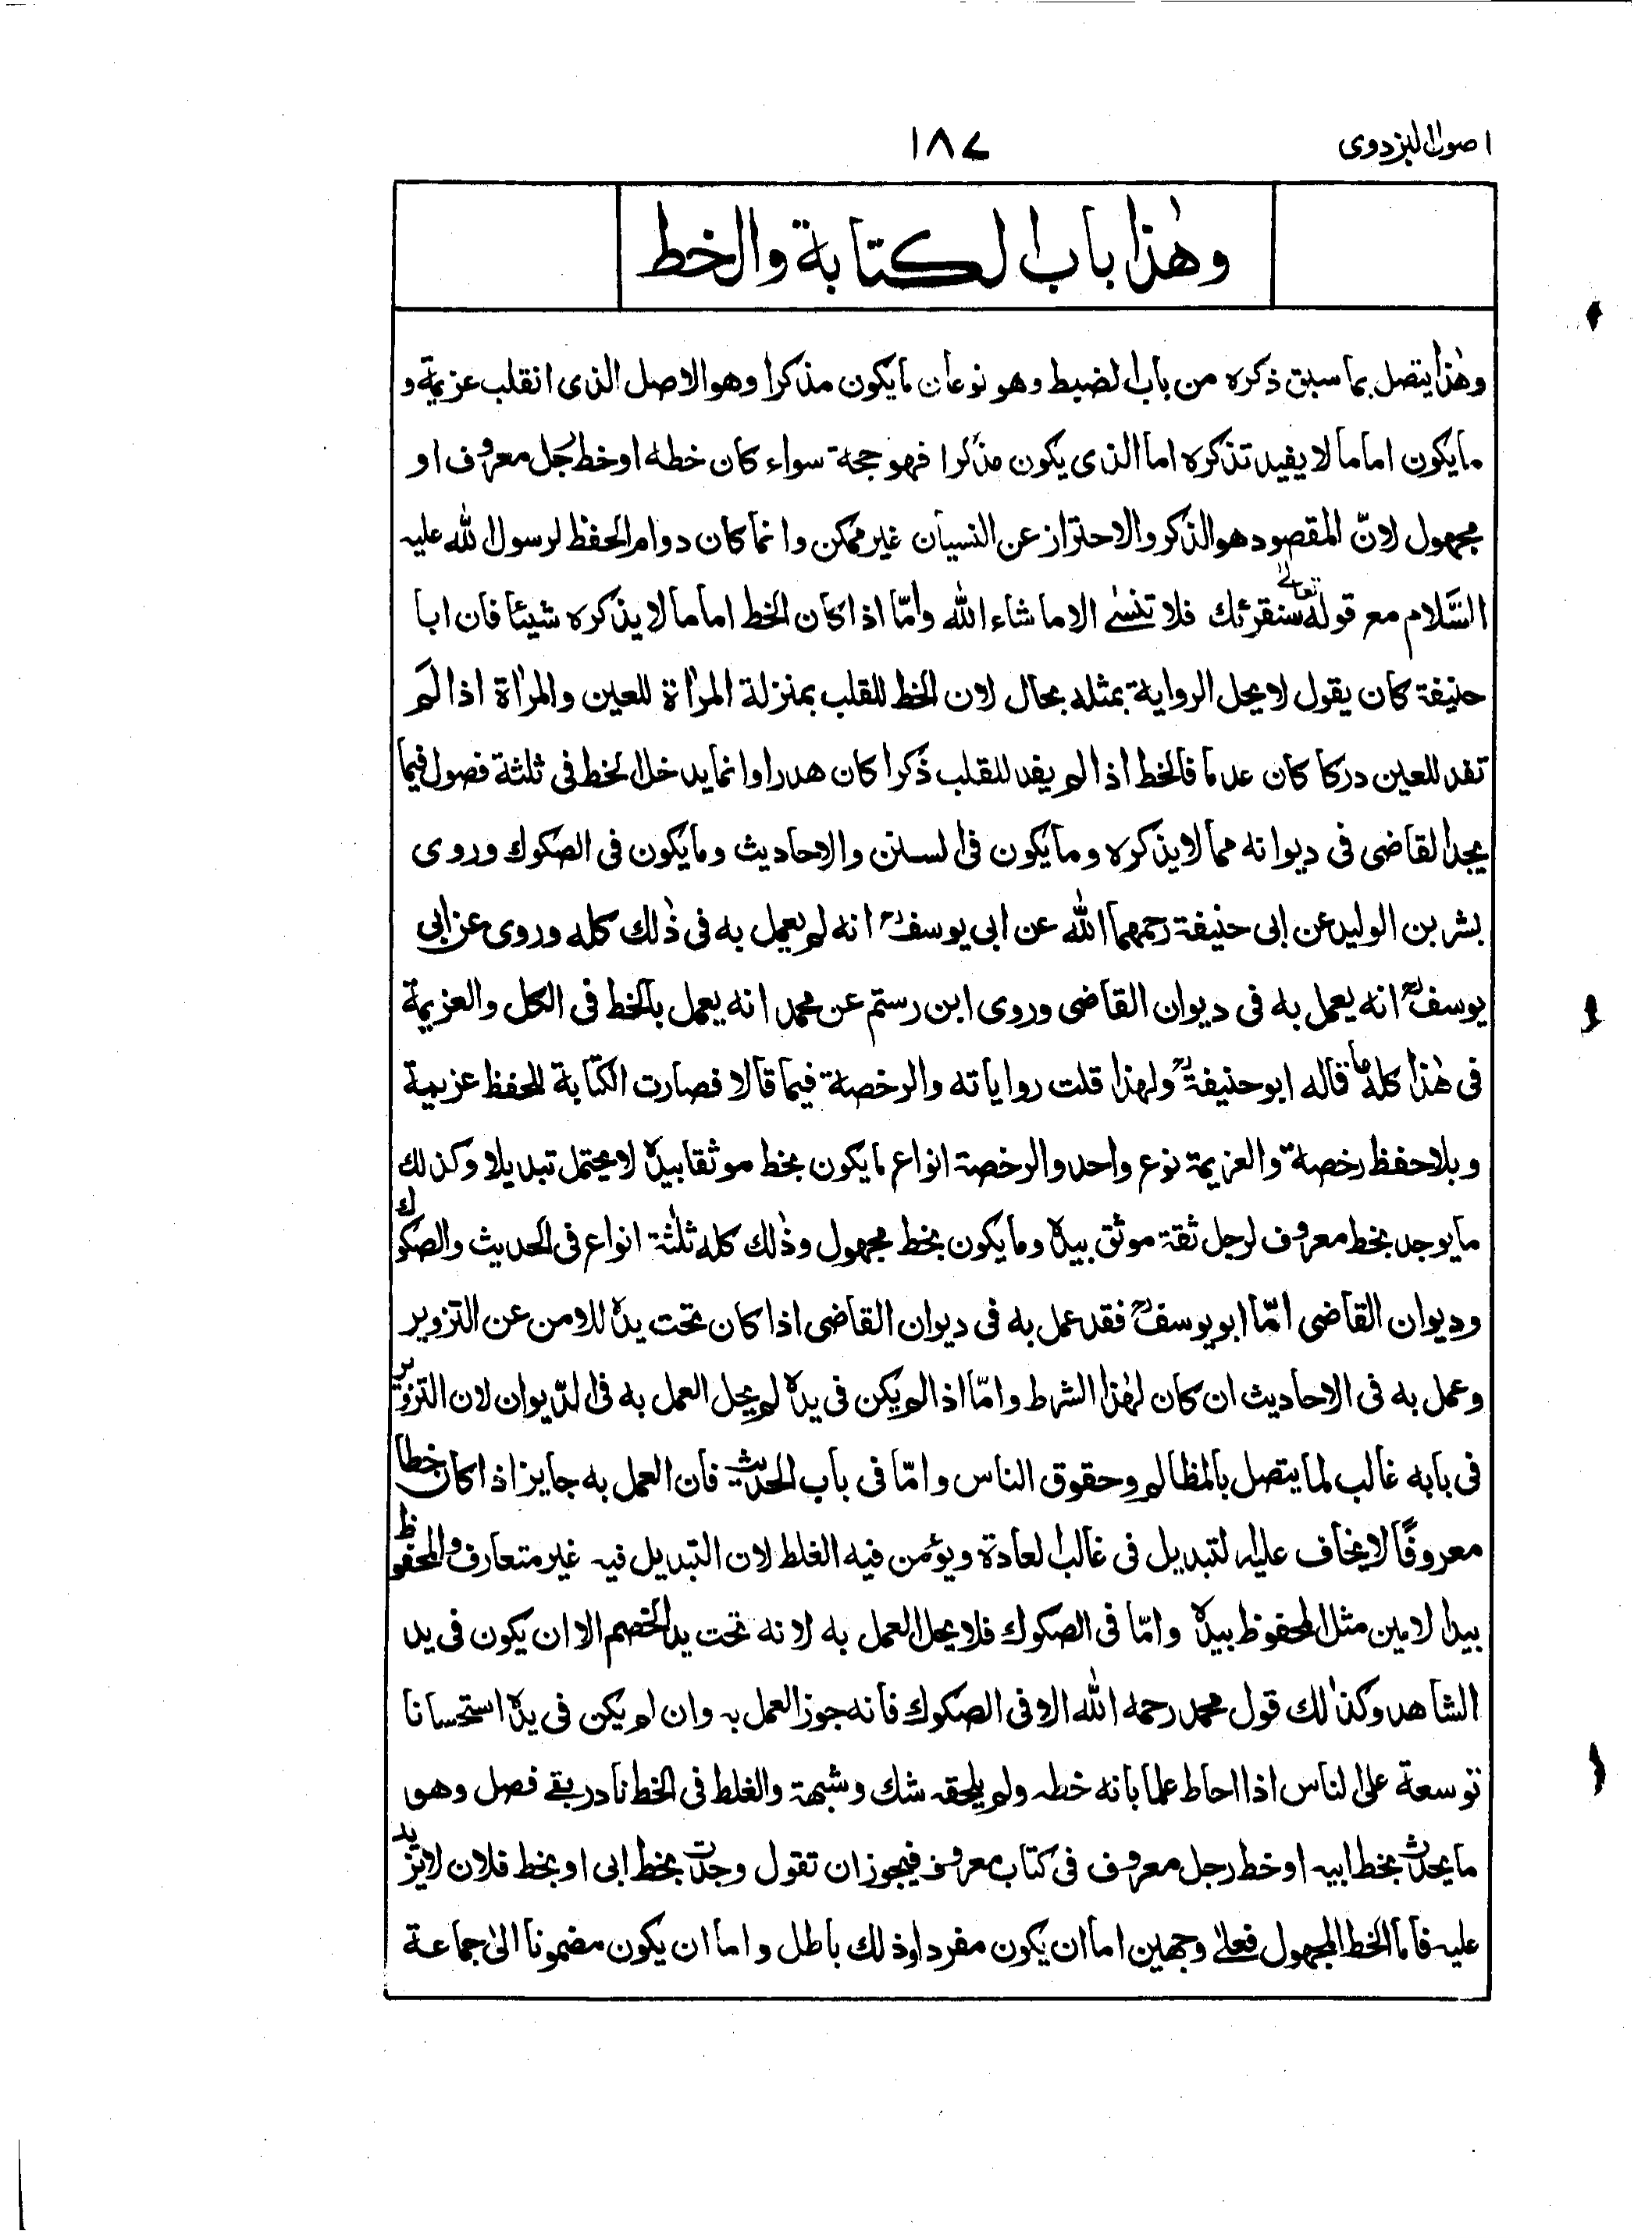 اصول البزدوى
١٨٧
وهٰذا باب الكتابة والخط
وهٰذا يتصل بما سبق ذكره من باب الضبط وهو نوعان ما يكون مذكرا وهو الاصل الذى انقلب عزيمة و
ما يكون اماما لا يفيد تذكره اما الذى يكون مذكرا فهو حجة سواء كان خطه او خط رجل معروف او
مجهول لانّ المقصود هو الذكر والاحتراز عن النسيان غير ممكن وانما كان دوام الحفظ لرسول الله عليه
السَّلام مع قوله تعالىٰ سنقرئك فلا تنسٰى الا ما شاء الله وامّا اذا كان الخط اماما لا يذكره شيئا فان ابا
حنيفة كان يقول لا يحل الرواية بمثله بحال لان الخط للقلب بمنزلة المرٰاة للعين والمرٰاة اذا لم
تفد للعين دركا كان عدما فالخط اذا لم يفد للقلب ذكرا كان هدرا وانما يدخل الخط فى ثلثة فصول فيما
يجد القاضى فى ديوانه مما لا يذكره وما يكون فى السنن والاحاديث وما يكون فى الصكوك وروى
بشر بن الوليد عن ابى حنيفة رحمهما الله عن ابى يوسفؒ انه لم يعمل به فى ذٰلك كله وروى عن ابى
يوسفؒ انه يعمل به فى ديوان القاضى وروى ابن رستم عن محمد انه يعمل بالخط فى الكل والعزيمة
فى هٰذا كله ما قاله ابو حنيفةؒ ولهذا قلت رواياته والرخصة فيما قالا فصارت الكتابة للحفظ عزيمة
وبلا حفظ رخصة والعزيمة نوع واحد والرخصة انواع ما يكون بخط موثقا بيده لا يحتمل تبديلا وكذلك
ما يوجد بخط معروف لرجل ثقة موثق بيده وما يكون بخط مجهول وذٰلك كله ثلٰثة انواع فى الحديث والصكوك
وديوان القاضى امّا ابو يوسفؒ فقد عمل به فى ديوان القاضى اذا كان تحت يده للامن عن التزوير
وعمل به فى الاحاديث ان كان لهٰذا الشرط وامّا اذا لم يكن فى يده لم يحل العمل به فى الدّيوان لان التزوير
فى بابه غالب لما يتصل بالمظالم وحقوق الناس وامّا فى باب الحديث فان العمل به جايز اذا كان خطا
معروفًا لا يخاف عليه التبديل فى غالب العادة ويؤمن فيه الغلط لان التبديل فيه غير متعارف والمحفوظ
بيد الامين مثل المحفوظ بيده وامّا فى الصكوك فلا يحل العمل به لانه تحت يد الخصم الا ان يكون فى يد
الشاهد وكذٰلك قول محمد رحمه الله الا فى الصكوك فانه جوز العمل به وان لم يكن فى يده استحسانا
توسعة على الناس اذا احاط علما بانه خطه ولم يلحقه شك وشبهة والغلط فى الخط نادر بقے فصل وهو
ما يحدث بخط ابيه او خط رجل معروف فى كتاب معروف فيجوز ان تقول وجدت بخط ابى او بخط فلان لا يزيد
عليه فاما الخط المجهول فعلےٰ وجهين اما ان يكون مفردا وذلك باطل واما ان يكون مضمونا الىٰ جماعة